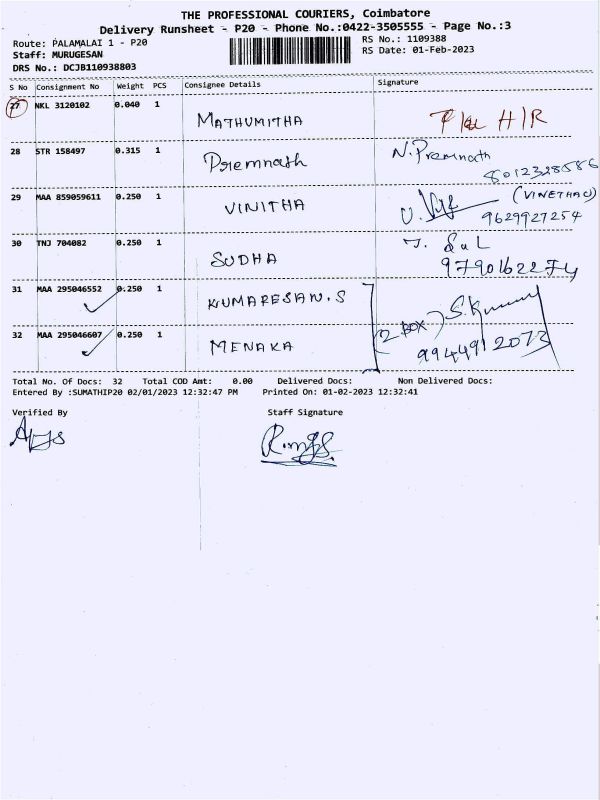 THE PROFESSIONAL COURIERS, Coimbatore
Delivery Runsheet - P20 - Phone No.:0422-3505555 - Page No.:3
Route: PALAMALAI 1 - P20
Staff: MURUGESAN
DRS No.: DCJB110938803
RS No.: 1109388
RS Date: 01-Feb-2023
S No Consignment No Weight PCS Consignee Details Signature
27 NKL 3120102 0.040 1 MATHUMITHA
28 STR 158497 0.315 1 Premnath N.Premnath
8012328586
29 MAA 859059611 0.250 1 VINITHA (VINETHA U)
9629927254
30 TNJ 704082 0.250 1 SUDHA
9790162274
31 MAA 295046552 0.250 1 KUMARESAN.S
32 MAA 295046607 0.250 1 MENAKA (2 BOX)
9944912073
Total No. Of Docs: 32 Total COD Amt: 0.00 Delivered Docs: Non Delivered Docs:
Entered By :SUMATHIP20 02/01/2023 12:32:47 PM Printed On: 01-02-2023 12:32:41
Verified By Staff Signature